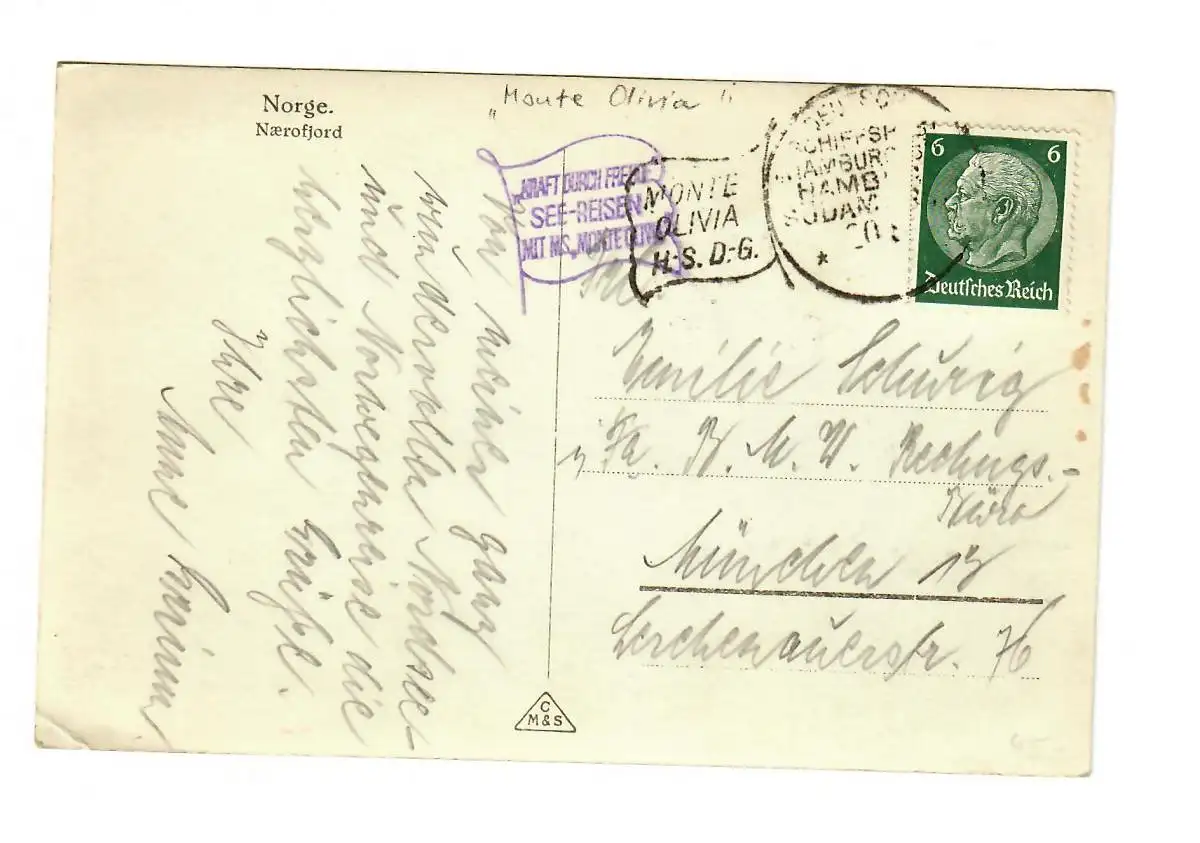 Norge.
Nærofjord
„Monte Olivia"
„KRAFT DURCH FREUDE"
SEE-REISEN
MIT M.S. „MONTE OLIVIA"
MONTE
OLIVIA
H.-S. D.-G.
DEUTSCH
SCHIFFSP
HAMBURG
HAMB
SÜDAM
*
6 6
Deutsches Reich
Von meiner ganz
wundervollen Nordsee
und Norwegenreise die
herzlichsten Grüße.
Ihre
Anne
Frl.
Emilie Schurig
Fa. B. M. W. Rechngs.-
Büro
München 13
Lerchenauerstr. 76
C
M & S